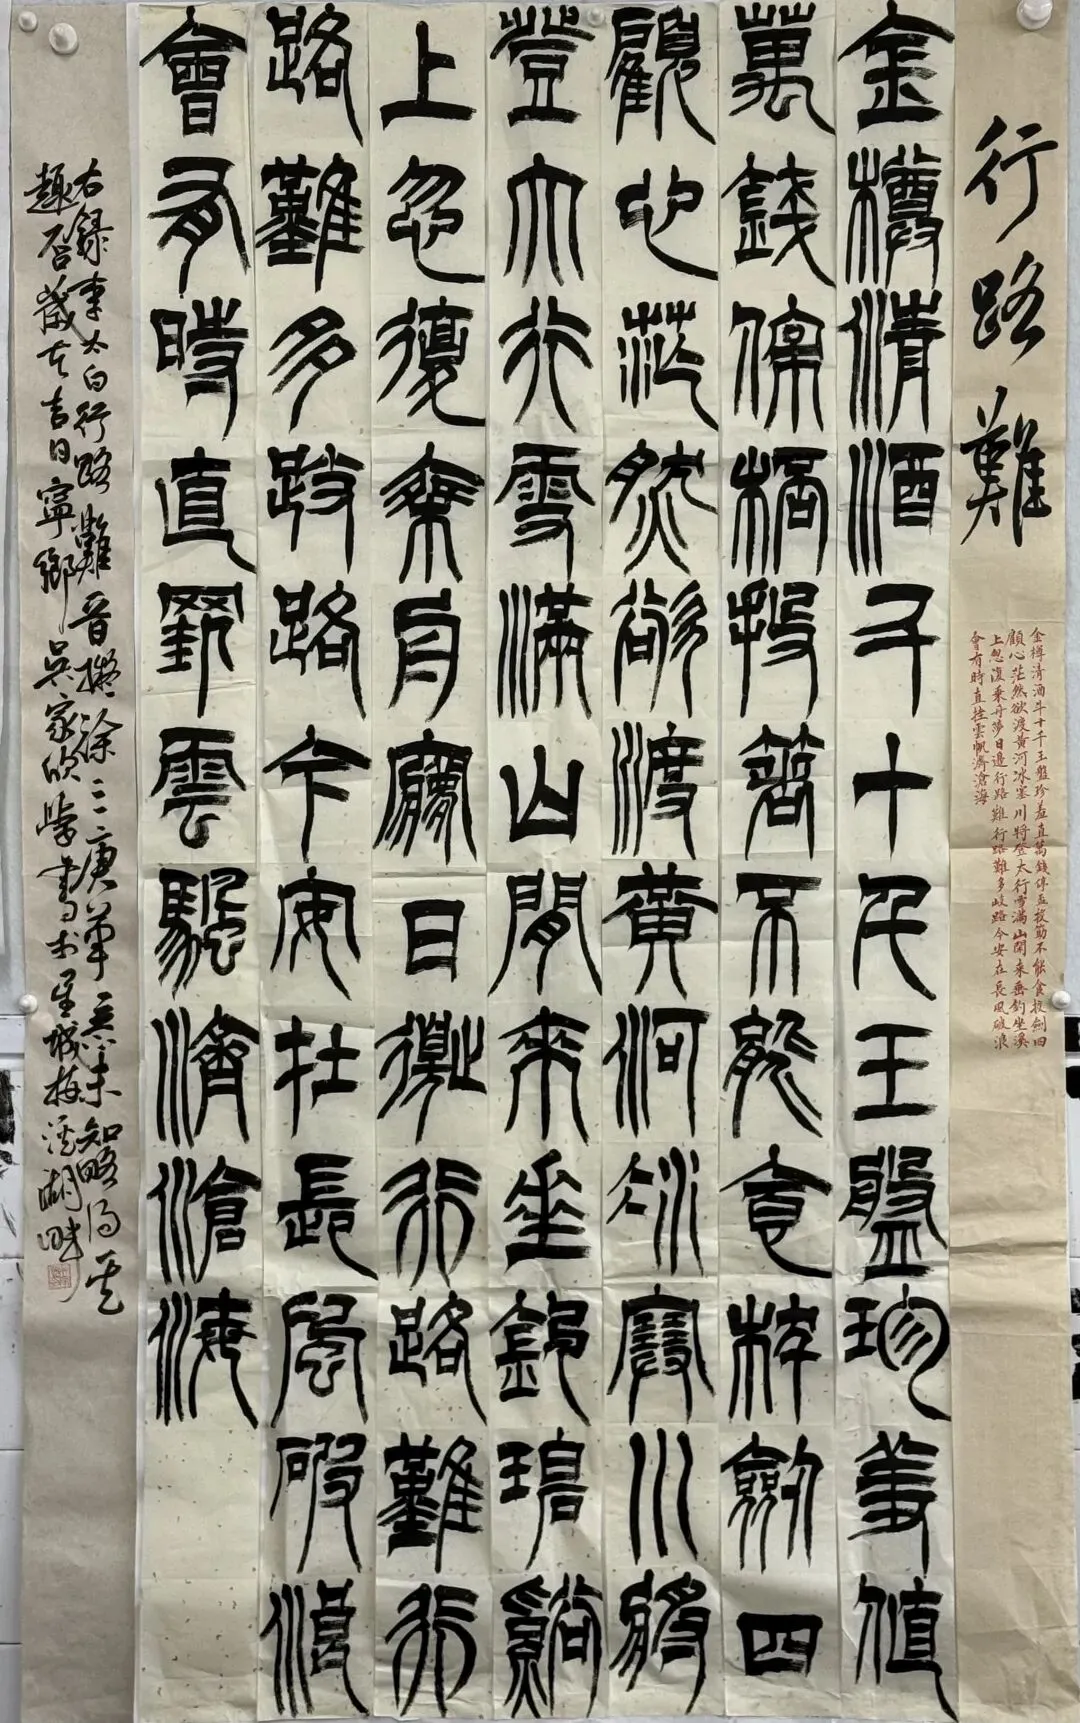 行路難
金樽清酒斗十千玉盤珍羞值
萬錢停桮投箸不能食拔劍四
顧心茫然欲渡黃河冰塞川將
登太行雪滿山閒來垂釣碧谿
上忽復乘舟夢日邊行路難行
路難多歧路今安在長風破浪
會有時直掛雲帆濟滄海
金樽清酒斗十千玉盤珍羞直萬錢停盃投筯不能食拔劍四
顧心茫然欲渡黃河冰塞川將登太行雪滿山閒來垂釣坐溪
上忽復乘舟夢日邊行路難行路難多歧路今安在長風破浪
會有時直挂雲帆濟滄海
右録李太白行路難首擬徐三庚筆意未知略得其
趣否歲在吉日寧鄉吳家欣學書於星城梅溪湖畔